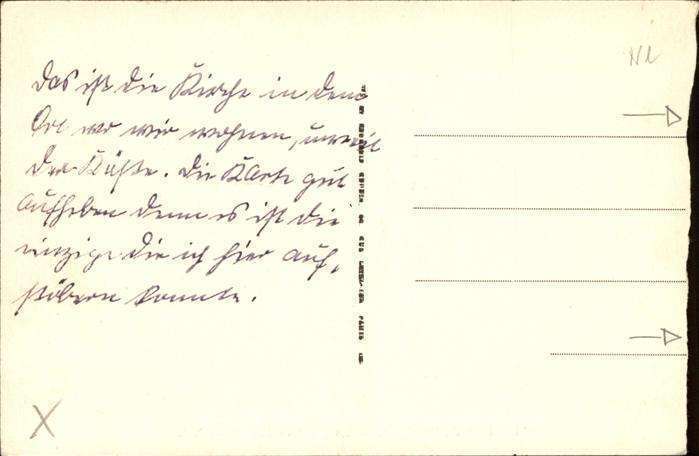 Nl
Das ist die Kirche in dem
Ort wo wir wohnen, unweit
der Küste. Die Karte gut
aufheben denn es ist die
einzige die ich hier auf-
stöbern konnte.
X